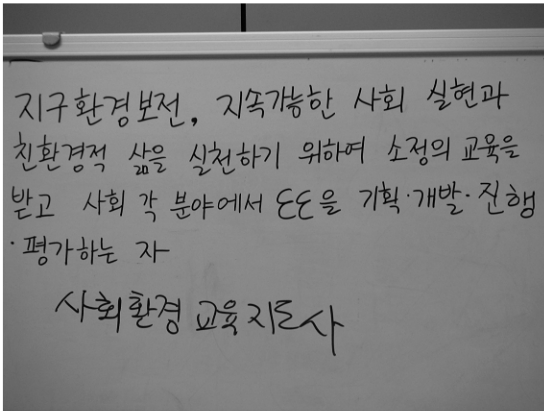 지구환경보전, 지속가능한 사회 실현과
친환경적 삶을 실천하기 위하여 소정의 교육을
받고 사회 각 분야에서 EE을 기획·개발·진행
·평가하는 자
사회환경교육지도사